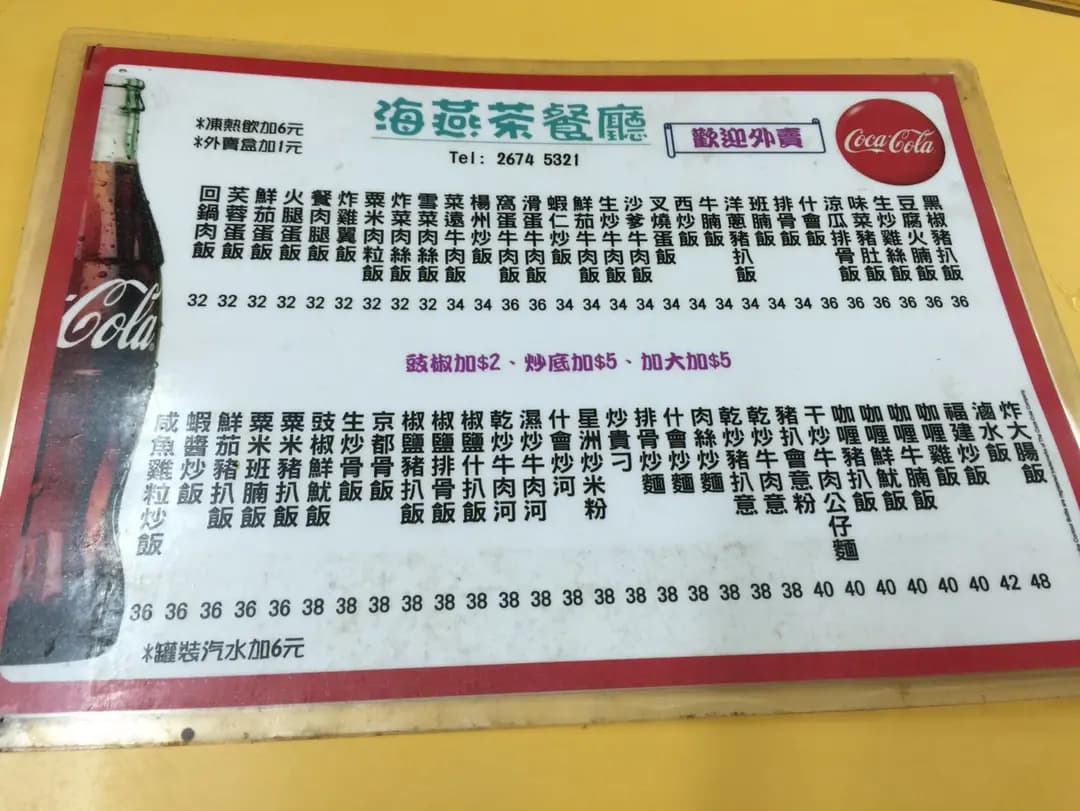 *凍熱飲加6元
*外賣盒加1元
海燕茶餐廳
Tel: 2674 5321
歡迎外賣
Coca-Cola
回鍋肉飯
芙蓉蛋飯
鮮茄蛋飯
火腿蛋飯
餐肉腿飯
炸雞翼飯
粟米肉粒飯
炸菜肉絲飯
雪菜肉絲飯
菜遠牛肉飯
楊州炒飯
窩蛋牛肉飯
滑蛋牛肉飯
蝦仁炒飯
鮮茄牛肉飯
生炒牛肉飯
沙爹牛肉飯
叉燒蛋飯
西炒飯
牛腩飯
洋蔥豬扒飯
班腩飯
排骨飯
什會飯
涼瓜排骨飯
味菜豬肚飯
生炒雞絲飯
豆腐火腩飯
黑椒豬扒飯
32 32 32 32 32 32 32 32 32 34 34 36 36 34 34 34 34 34 34 34 34 34 34 36 36 36 36 36 36
Cola
豉椒加$2、炒底加$5、加大加$5
咸魚雞粒炒飯
蝦醬炒飯
鮮茄豬扒飯
粟米班腩飯
粟米豬扒飯
豉椒鮮魷飯
生炒骨飯
京都骨飯
椒鹽豬扒飯
椒鹽排骨飯
椒鹽什扒飯
乾炒牛肉河
濕炒牛肉河
什會炒河
星洲炒米粉
炒貴刁
排骨炒麵
什會炒麵
肉絲炒麵
乾炒豬扒意
乾炒牛肉意
豬扒會意粉
干炒牛肉公仔麵
咖喱豬扒飯
咖喱鮮魷飯
咖喱牛腩飯
咖喱雞飯
福建炒飯
滷水飯
炸大腸飯
36 36 36 36 36 38 38 38 38 38 38 38 38 38 38 38 38 38 38 38 38 38 40 40 40 40 40 40 42 48
*罐裝汽水加6元